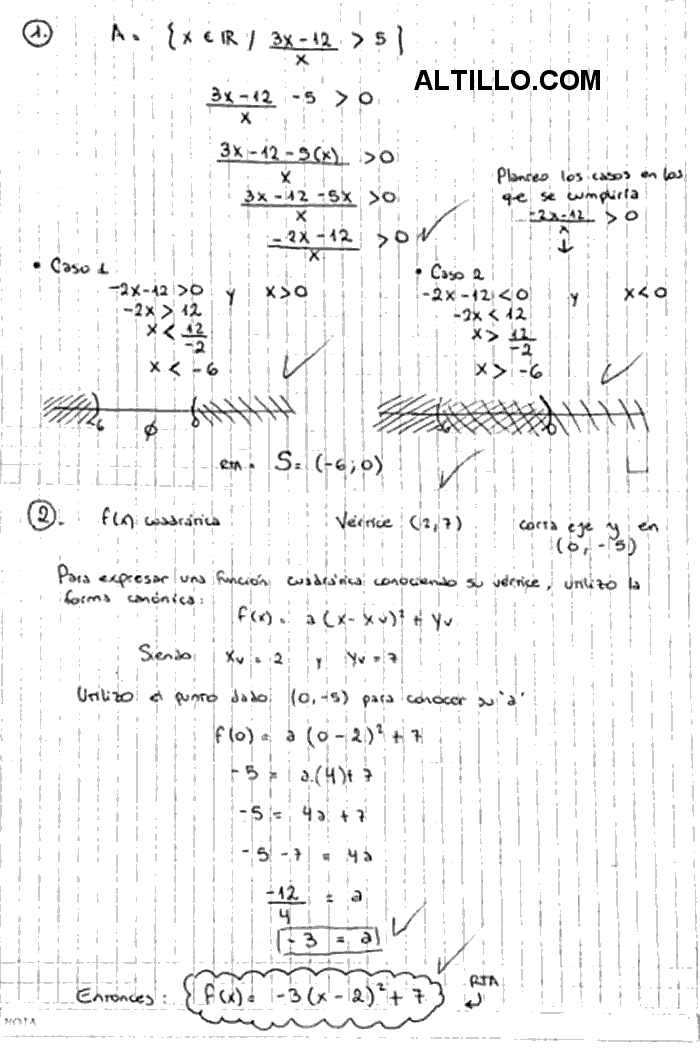 1. A = { x ∈ IR / (3x-12)/x > 5 }
ALTILLO.COM
(3x-12)/x - 5 > 0
(3x-12-5(x))/x > 0
(3x-12-5x)/x > 0
(-2x-12)/x > 0
Planteo los casos en los
que se cumpliría
(-2x-12)/x > 0
↓
• Caso 1
-2x-12 > 0 y x > 0
-2x > 12
x < 12/-2
x < -6
-6 ∅ 0
• Caso 2
-2x-12 < 0 y x < 0
-2x < 12
x > 12/-2
x > -6
-6 0
RTA = S = (-6; 0)
2. f(x) cuadrática Vértice (2,7) corta eje y en
(0, -5)
Para expresar una función cuadrática conociendo su vértice, utilizo la
forma canónica:
f(x) = a (x - xv)² + yv
Siendo xv = 2 y yv = 7
Utilizo el punto dado (0,-5) para conocer su "a"
f(0) = a (0-2)² + 7
-5 = a.(4) + 7
-5 = 4a + 7
-5 -7 = 4a
-12/4 = a
-3 = a
Entonces: f(x) = -3(x-2)² + 7 RTA
NOTA